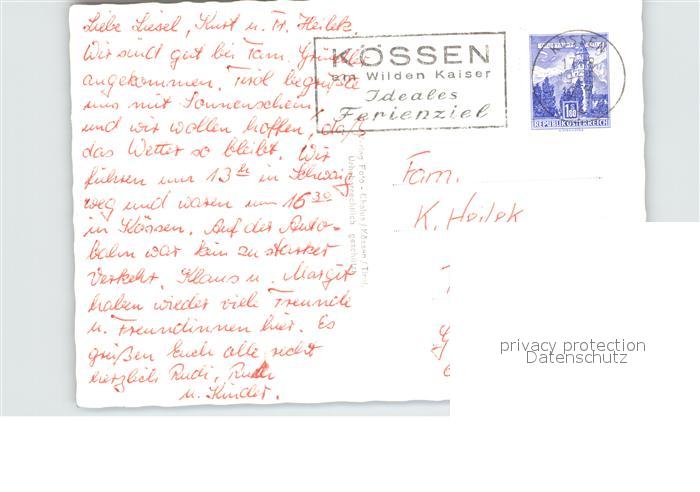 Liebe Liesel, Kurt u. Fr. Heilek.
Wir sind gut bei Fam.
angekommen. Tirol begrüßte
uns mit Sonnenschein
und wir wollen hoffen, daß
das Wetter so bleibt. Wir
fuhren um 13 in Schwaig
weg und waren um 16 30
in Kössen. Auf der Auto-
bahn war kein zu starker
Verkehr. Klaus u. Margit
haben wieder viele Freunde
u. Freundinnen hier. Es
grüßen Euch alle recht
herzlich Rudi,
u. Kinder.
KÖSSEN
am Wilden Kaiser
Ideales
Ferienziel
KÖSSEN
1.80
REPUBLIK ÖSTERREICH
Foto - Chalus / Kössen / Tirol
Urheberrechtlich geschützt
Fam.
K. Heilek
privacy protection
Datenschutz